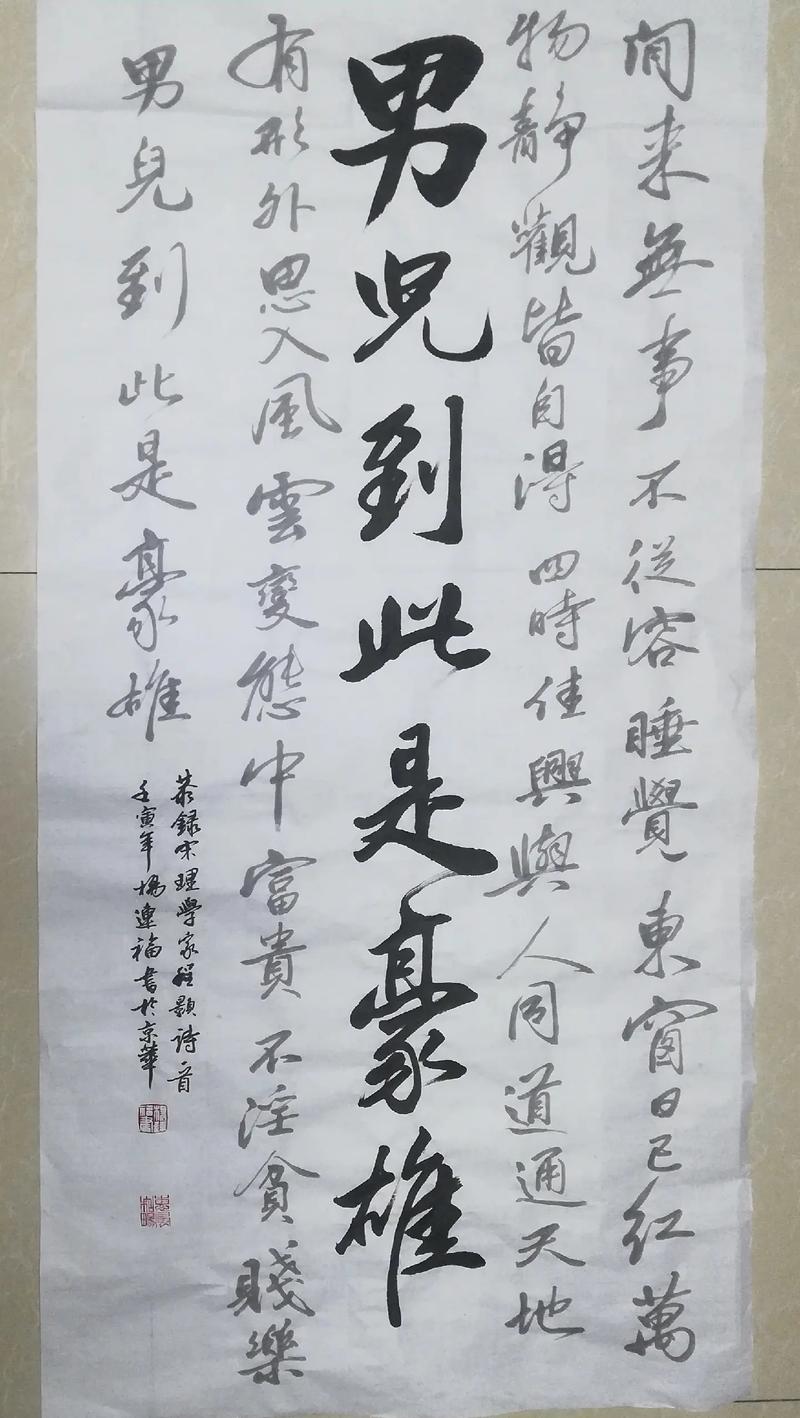 閒来無事不從容睡覺東窗日已红萬
物靜觀皆自得四時佳興與人同道通天地
男児到此是豪雄
有形外思入風雲變態中富貴不淫貧賤樂
男兒到此是豪雄
恭録宋理學家程顥詩一首
壬寅年楊連福書於京華